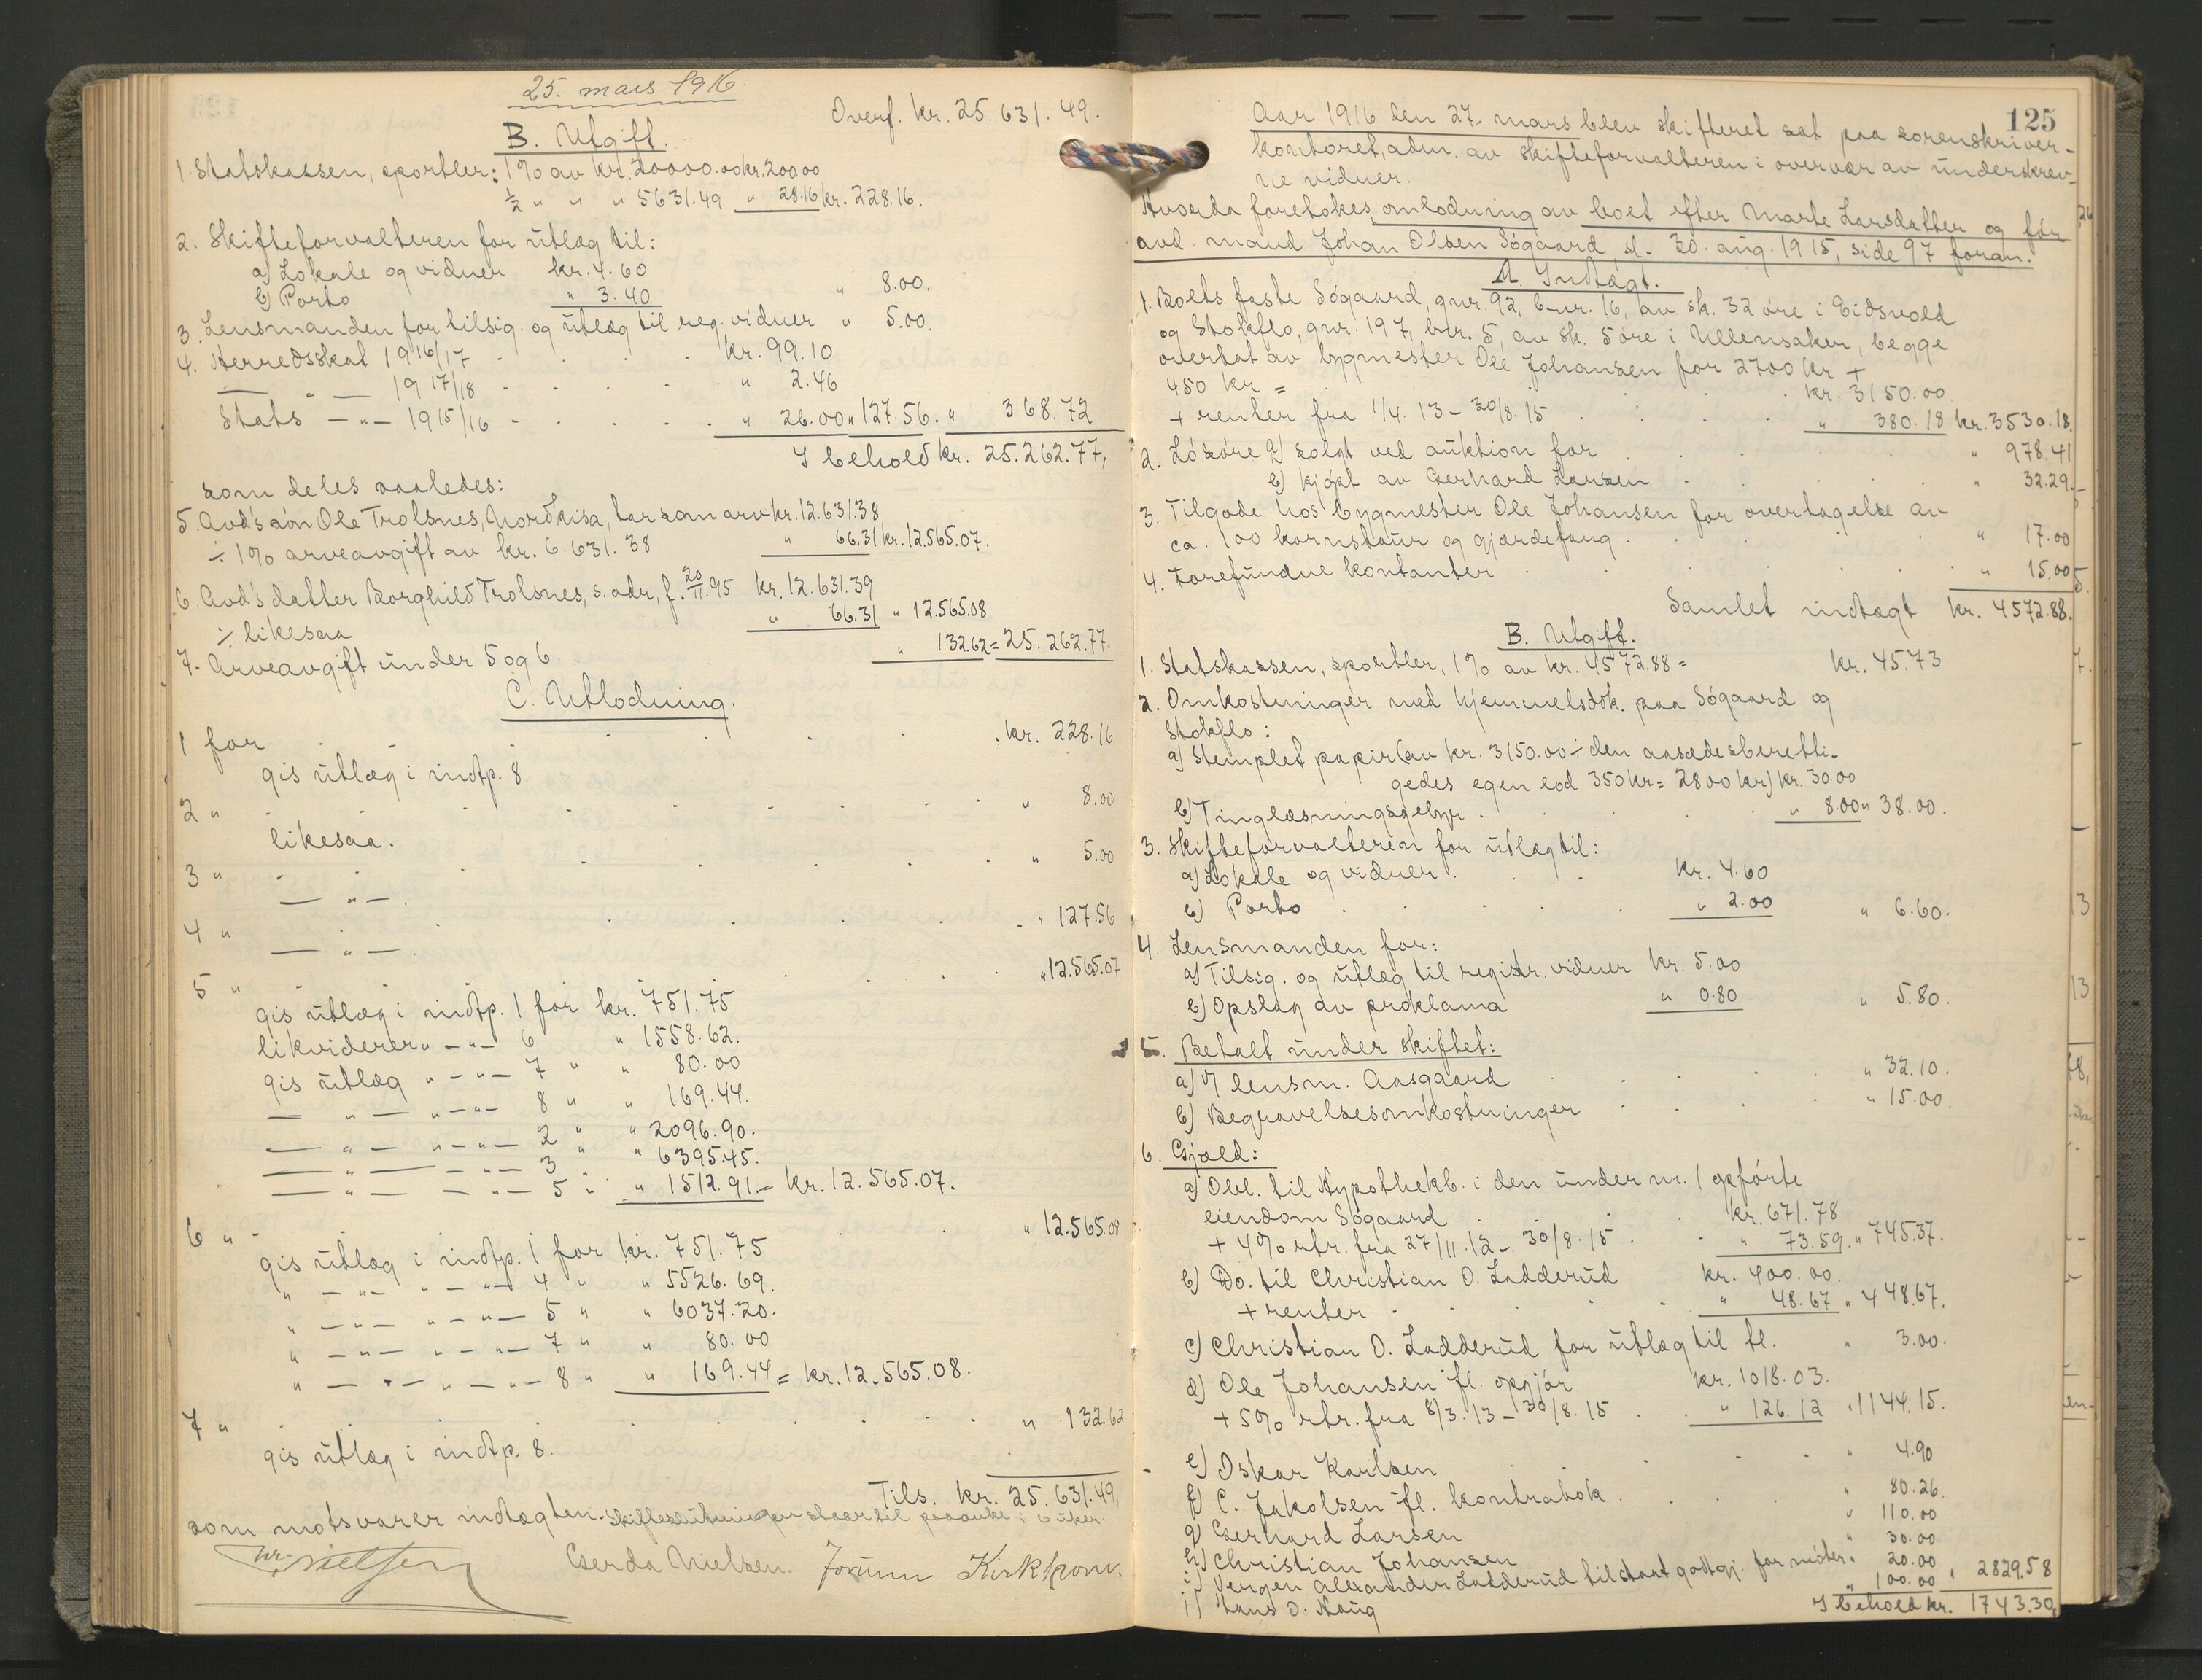 25. mars 1916.
Overf. kr. 25.631.49.
B. Utgift.
1. Statskassen, sportler: 1% av kr. 20000.00 kr. 200.00
½ " " " 5631.49 " 28.16 kr. 228.16.
2. Skifteforvalteren for utlæg til:
a) Lokale og vidner kr. 4.60
b) Porto " 3.40 " 8.00.
3. Lensmanden for tilsig. og utlæg til reg. vidner " 5.00.
4. Herredsskat 1916/17 kr. 99.10
— " — 1917/18 " 2.46
Stats — " — 1915/16 " 26.00 " 127.56. " 368.72
I behold kr. 25.262.77,
som deles saaledes:
5. Avd's søn Ole Trolsnes, Nordkisa, tar som arv kr. 12.631.38
÷ 1% arveavgift av kr. 6.631.38 " 66.31 kr. 12.565.07.
6. Avd's datter Borghild Trolsnes, s. adr., f. 20/11.95 kr. 12.631.39
÷ likesaa " 66.31 " 12.565.08
7. Arveavgift under 5 og 6. " 132.62 = 25.262.77.
C. Utlodning.
1 for kr. 228.16
gis utlæg i indtp. 8.
2 " " 8.00
likesaa.
3 " " 5.00
— " —.
4 " " 127.56
— " —.
5 " " 12.565.07
gis utlæg i indtp. 1 for kr. 751.75
likviderer " — " — 6 " 1558.62.
gis utlæg " — " — 7 " " 80.00
— " — " — " — 8 " " 169.44.
— " — " — " — 2 " " 2096.90.
— " — — " — 3 " 6395.45.
— " — — " — 5 " " 1512.91 = kr. 12.565.07.
6 " " 12.565.08
gis utlæg i indtp. 1 for kr. 751.75
" — " — " — " — 4 " " 5526.69.
" — " — " — " — 5 " " 6037.20.
" — " — " — " — 7 " " 80.00
" — " — " — " — 8 " " 169.44 = kr. 12.565.08.
7 " " 132.62
gis utlæg i indtp. 8.
Tils. kr. 25.631.49,
som motsvarer indtægten. Skifteslutningen staar til paaanke i 6 uker.
Nielsen Gerda Nielsen. Jorunn Kirkhorn.
125
Aar 1916 den 27. mars blev skifteret sat paa sorenskriver-
kontoret, adm. av skifteforvalteren i overvær av underskrev-
ne vidner.
Hvorda foretokes omlodning av boet efter Marte Larsdatter og før
avd. mand Johan Olsen Søgaard, sl. 30. aug. 1915, side 97 foran.
A. Indtægt.
1. Boets faste Søgaard, gnr. 92, bnr. 16, av sk. 32 øre i Eidsvold
og Stokflo, gnr. 197, bnr. 5, av sk. 5 øre i Ullensaker, begge
overtat av bygmester Ole Johansen for 2700 kr +
450 kr = kr. 3150.00
+ renter fra 1/4.13 - 30/8.15 " 380.18 kr. 3530.18.
2. Løsøre a) solgt ved auktion for " 978.41
b) kjøpt av Gerhard Larsen " 32.29.
3. Tilgode hos bygmester Ole Johansen for overtagelse av
ca. 100 kornstaur og gjærdefang " 17.00
4. Forefundne kontanter " 15.00
Samlet indtægt kr. 4572.88.
B. Utgift.
1. Statskassen, sportler, 1% av kr. 4572.88 = kr. 45.73
2. Omkostninger med hjemmelsdok. paa Søgaard og
Stokflo:
a) Stemplet papir (av kr. 3150.00 ÷ den aasædesberetti-
gedes egen lod 350 kr = 2800 kr) kr. 30.00
b) Tinglæsningsgebyr " 8.00 " 38.00.
3. Skifteforvalteren for utlæg til:
a) Lokale og vidner kr. 4.60
b) Porto " 2.00 " 6.60.
4. Lensmanden for:
a) Tilsig. og utlæg til registr. vidner kr. 5.00
b) Opslag av proklama " 0.80 " 5.80.
5. Betalt under skiftet:
a) lensm. Aasgaard " 32.10.
b) Begravelsesomkostninger " 15.00.
6. Gjæld:
a) Obl. til Hypothekb. i den under nr. 1 opførte
eiendom Søgaard kr. 671.78
+ 4% rtr. fra 27/11.12 - 30/8.15 " 73.59. " 745.37.
b) Do. til Christian O. Ladderud kr. 400.00.
+ renter " 48.67 " 448.67.
c) Christian O. Ladderud for utlæg til fl. " 3.00.
d) Ole Johansen fl. opgjør kr. 1018.03.
+ 5% rtr. fra 8/3.13 - 30/8.15 " 126.12 " 1144.15.
e) Oskar Karlsen " 4.90
f) C. Jakobsen fl. kontrabok " 80.26.
g) Gerhard Larsen " 110.00
h) Christian Johansen " 30.00
i) Vergen Alexander Ladderud tilstaat godtgj. for møter " 20.00
j) Hans O. Haug " 100.00 " 2829.58
I behold kr. 1743.30,